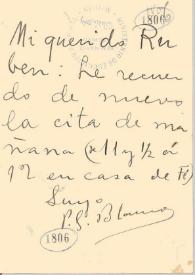 1806
Mi querido Ru
ben: Le recuer
do de nuevo
la cita de ma
ñana (11 y ½ á
12 en casa de Fé)
Suyo
P. G. Blanco
1806